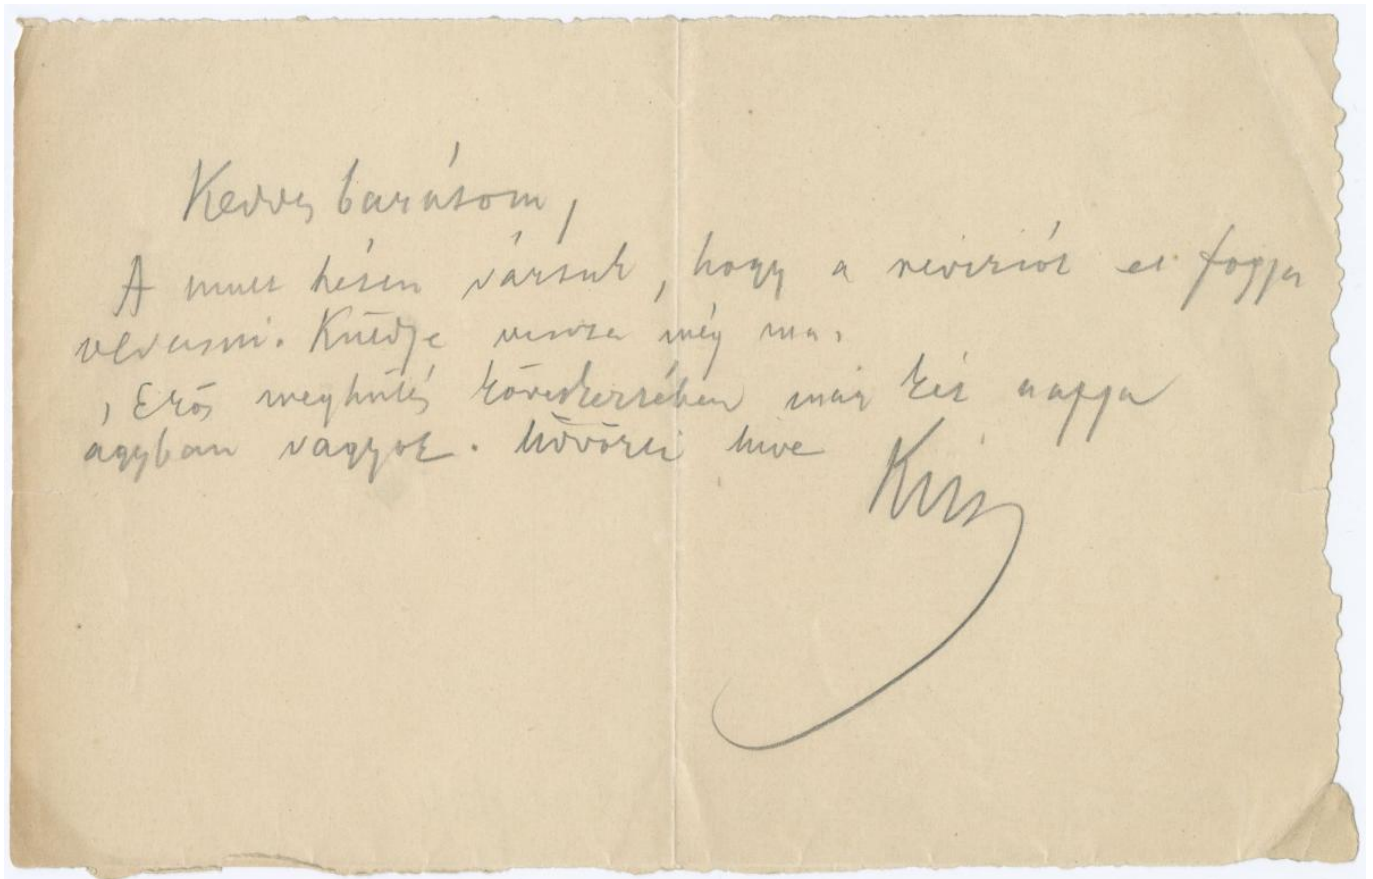 Kedves barátom,
A mult héten vártuk, hogy a reviziót el fogja
olvasni. Küldje vissza még ma.
Erős meghülés következtében már két napja
ágyban vagyok. Üdvözli hive
Kiss